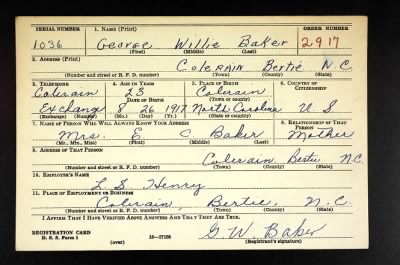 SERIAL NUMBER 1. NAME (Print) ORDER NUMBER
1036 George Willie Baker 2917
(First) (Middle) (Last)
2. ADDRESS (Print)
Colerain Bertie N C
(Number and street or R. F. D. number) (Town) (County) (State)
3. TELEPHONE 4. AGE IN YEARS 5. PLACE OF BIRTH 6. COUNTRY OF CITIZENSHIP
Colerain 23 Colerain
DATE OF BIRTH (Town or county)
Exchange 8 26 1917 North Carolina U. S.
(Exchange) (Number) (Mo.) (Day) (Yr.) (State or country)
7. NAME OF PERSON WHO WILL ALWAYS KNOW YOUR ADDRESS 8. RELATIONSHIP OF THAT PERSON
Mrs. E C. Baker Mother
(Mr., Mrs., Miss) (First) (Middle) (Last)
9. ADDRESS OF THAT PERSON
Colerain Bertie N.C.
(Number and street or R. F. D. number) (Town) (County) (State)
10. EMPLOYER'S NAME
L. S. Henry
11. PLACE OF EMPLOYMENT OR BUSINESS
Colerain, Bertie, N. C.
(Number and street or R. F. D. number) (Town) (County) (State)
I AFFIRM THAT I HAVE VERIFIED ABOVE ANSWERS AND THAT THEY ARE TRUE.
REGISTRATION CARD
D. S. S. Form 1 (over) 16—17105 G. W. Baker
(Registrant's signature)